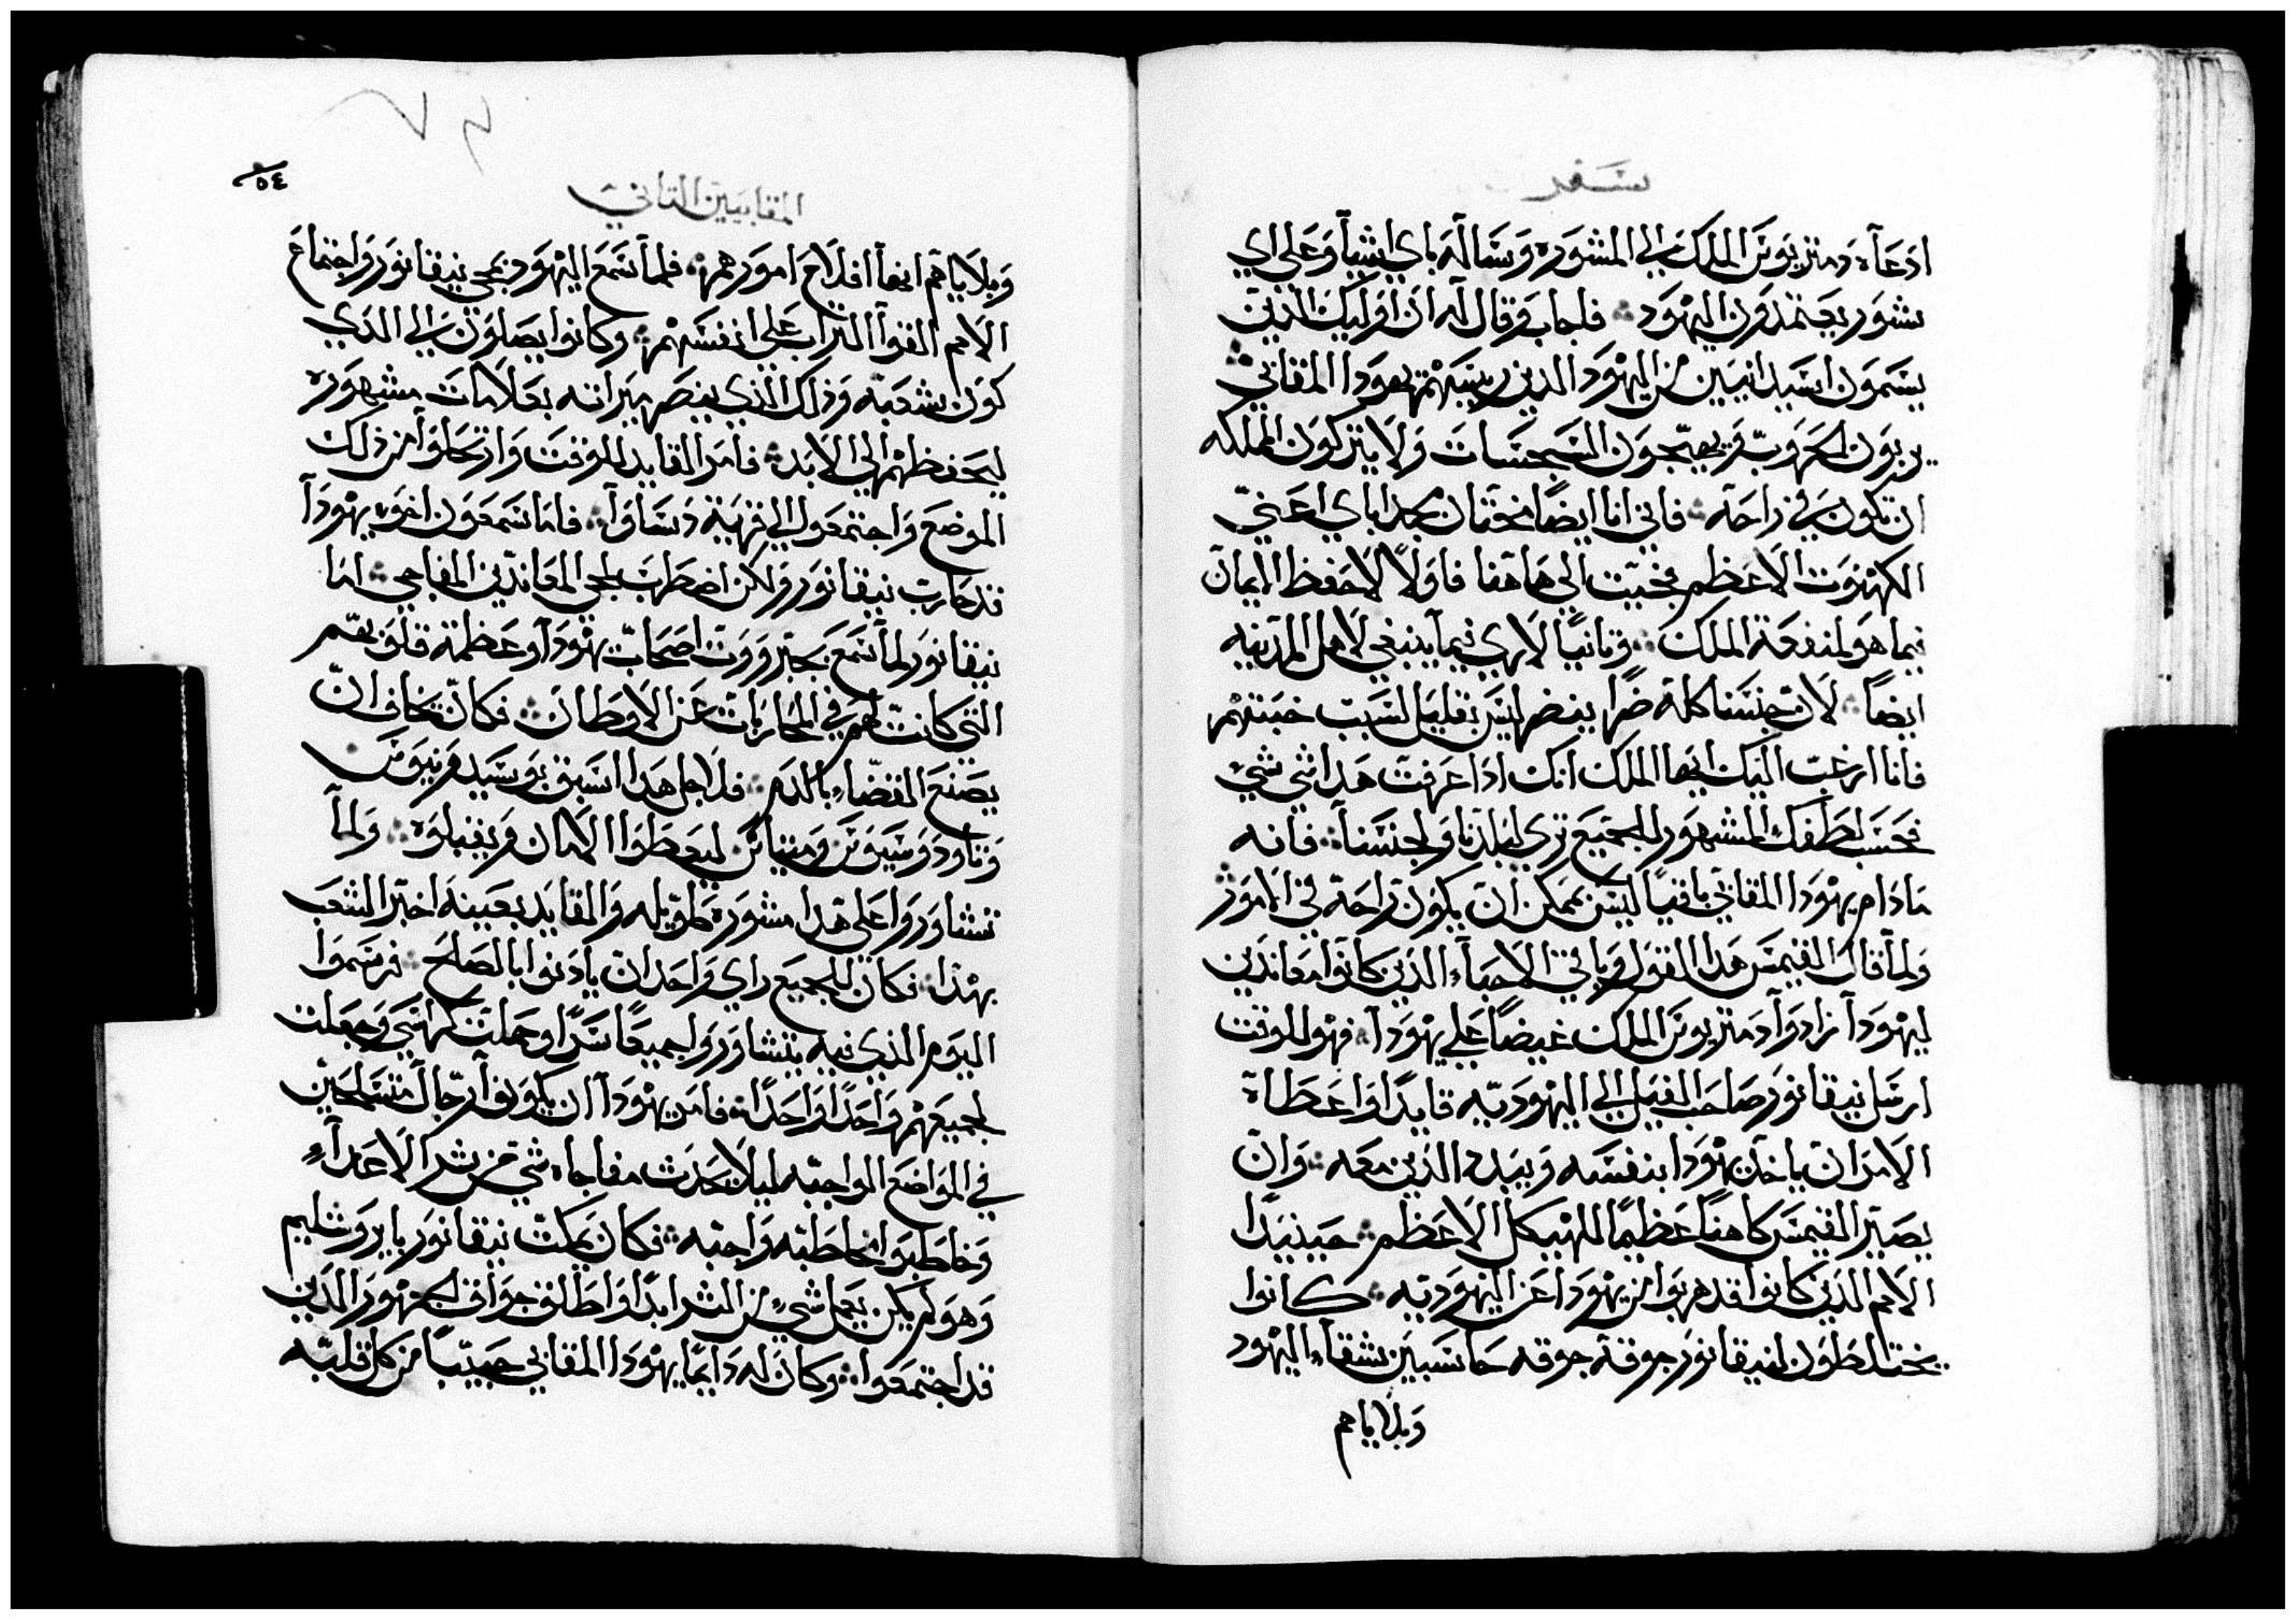 سفر
ادعاه دمتريوس الملك الي المشوره وساله باي اشيا وعلي اي
شور يعتمدون اليهود فاجاب وقال له ان اوليك الذين
يسمون اسيدانيين من اليهود الدين رييسهم يهودا المقابي
يربون الحروب ويهيجون السجسات ولا يتركون المملكه
ان تكون في راحة فاني انا ايضًا مجد اباي اعني
الكهنوت الاعظم فجيت الي هاهنا فاولًا لاحفظ الايمان
فيما هو لمنفعة الملك وتانيًا لاري فيما ينبغي لاهل المدينه
ايضًا لان جنسنا كله ضرا ليس بقليل لسبب خبتهم
فانا ارغب اليك ايها الملك انك ادا عرفت هدا شي شي
فحسب لطفك المشهور للجميع تري لبلدنا ولجنسنا فانه
مادام يهودا المقابي باقيًا ليس يمكن ان يكون راحة في الامور
ولما قال القيمس هدا القول وباقي الاحبا الدين كانوا معاندين
ليهودا زادوا دمتريوس الملك غيضًا علي يهودا فهو للوقت
ارسل نيقانور صاحب الفيل الي اليهوديه قايدًا واعطاه
الامر ان ياخد يهودا بنفسه ويبدد الدين معه وان
يصير القيمس كاهنًا عظيمًا للهيكل الاعظم حينيدا
الامم الدين كانوا قد هربوا من يهودا عن اليهوديه كانوا
يختلطون لنيقانور جوقة جوقه حاسبين شقا اليهود
وبلاياهم
٥٤
المقابيين التاني
وبلاياهم انها افلاح امورهم فلما سمع اليهود بمجي نيقانور واجتماع
الامم القوا التراب علي انفسهم وكانوا يصلون الي الدي
كون شعبه وذلك الذي ينصر ميراته بعلامات مشهوره
ليحفظهم الي الابد فامر القايد للوقت وارتحلوا من ذلك
الموضع واجتمعوا الي قرية دساوا فاما سمعون اخو يهودا
قد حارب نيقانور ولكن اضطرب بمجي المعاندين المفاجي اما
نيقانور لما سمع بجبروت اصحاب يهودا وعظمة قلوبهم
التي كانت لهم في المحاربات عن الاوطان فكان يخاف ان
يصنع القضا بالدم فلاجل هدا اسبق بوسيدونيوس
وتاودوسيوس ومتياس ليعطوا الامان ويقبلوه ولما
تشاوروا علي هدا مشورة طويله والقايد بعينه اخبر الشعب
بهدا فكان للجميع راي واحد ان يادنوا بالصلح فرسموا
اليوم الذي فيه يتشاوروا جميعًا سرًا وحملت كراسي وجعلت
لجميعهم واحدًا واحدًا فامر يهودا ان يكونوا رجال متسلحين
في المواضع الواجبه ليلا يحدث مفاجاه شي من شر الاعداء
وخاطبوا مخاطبه واجبه فكان يمكت نيقانور بايروشليم
وهو لم يكن يعمل شي من الشر ابدًا واطلق جواق الجمهور الدين
قد اجتمعوا وكان له دايمًا يهودا المقابي حبيبًا من كل قلبه